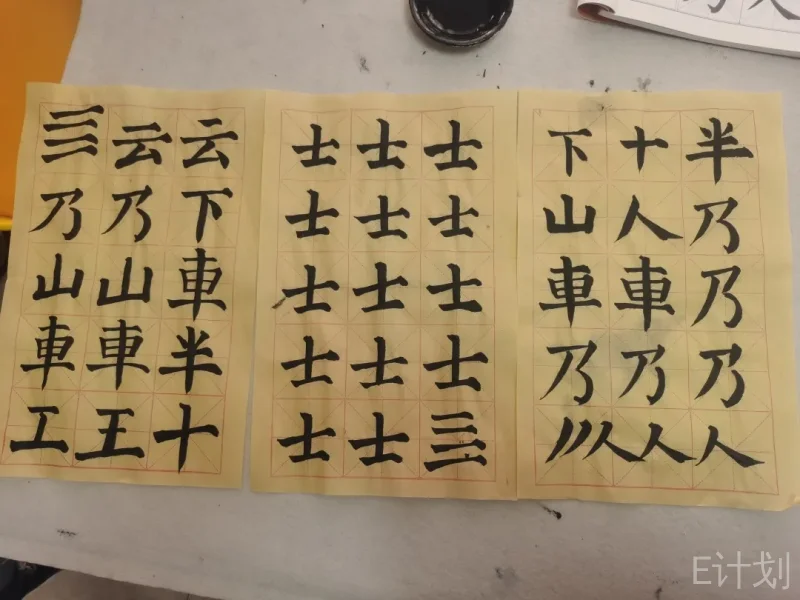 云云
乃乃下
山山車
車車半
工王十
士士士
士士士
士士士
士士士
士士
下十半
山人乃
車車乃
乃乃乃
人人人
E计划